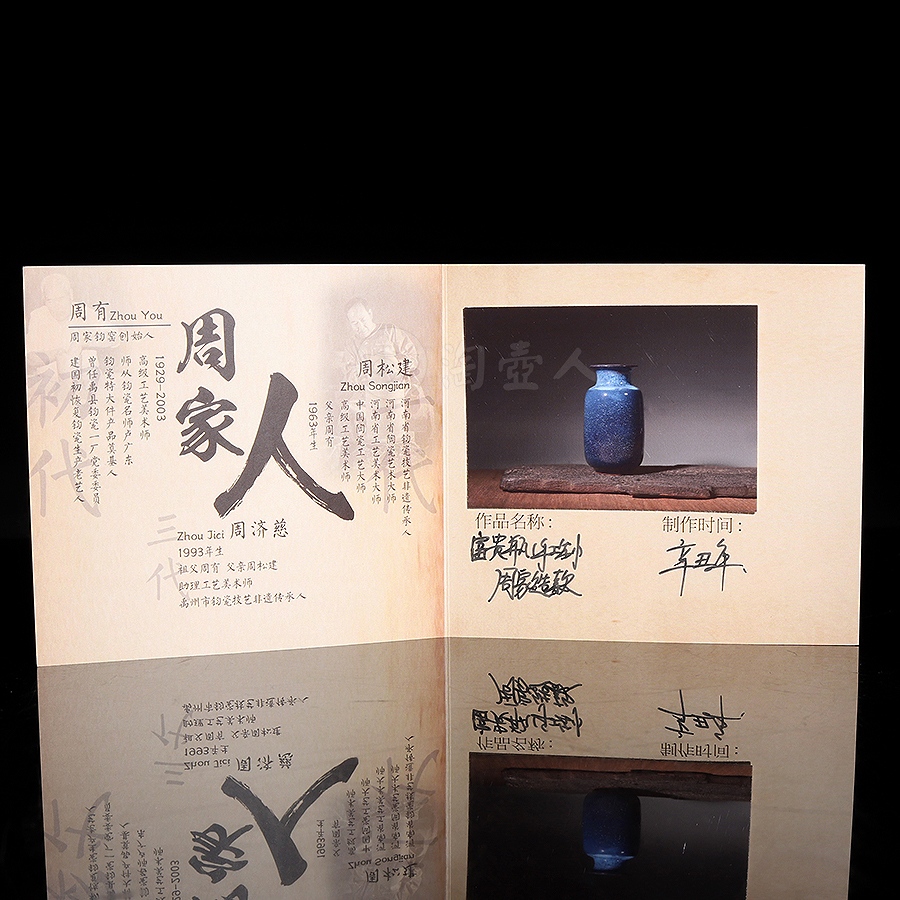 周有 Zhou You
周家钧窑创始人
1929-2003
高级工艺美术师
师从钧瓷名师卢广东
钧瓷特大件产品奠基人
曾任禹县钧瓷一厂党委委员
建国初恢复钧瓷生产老艺人
初代
周家人
周松建
Zhou Songjian
河南省钧瓷技艺非遗传承人
河南省陶瓷艺术大师
河南省工艺美术大师
中国陶瓷工艺大师
高级工艺美术师
父亲周有
1963年生
二代
三代
Zhou Jici 周济慈
1993年生
祖父周有 父亲周松建
助理工艺美术师
禹州市钧瓷技艺非遗传承人
陶壶人
作品名称:
富贵瓶
周家造款
制作时间:
辛丑年